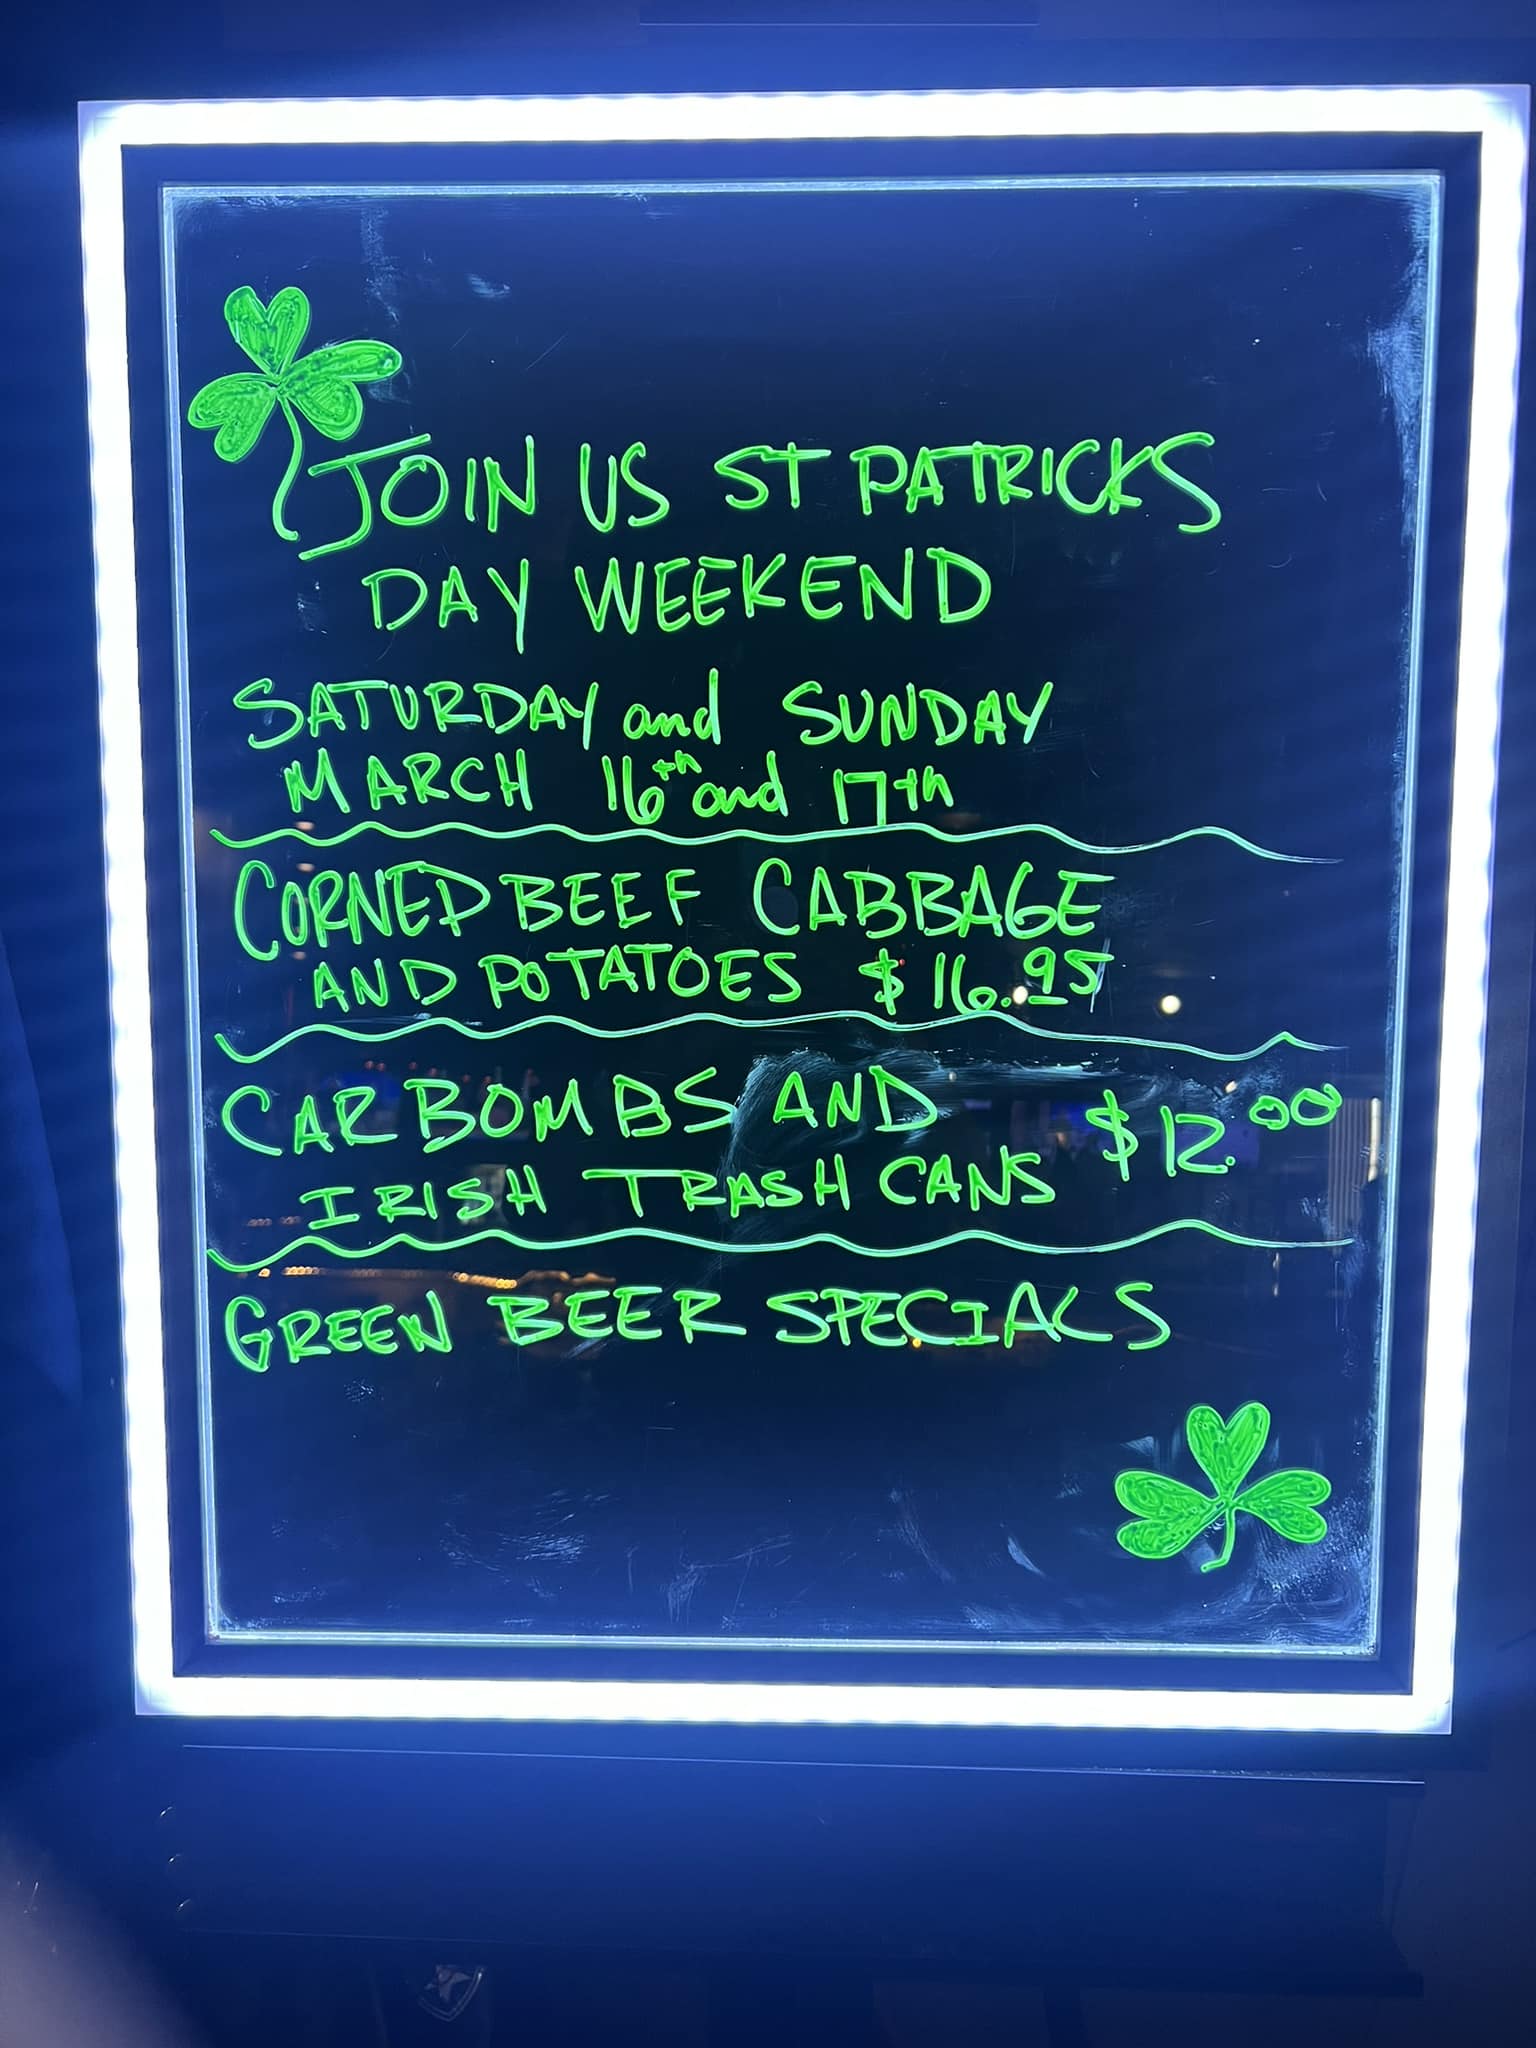 JOIN US ST PATRICKS
DAY WEEKEND
SATURDAY and SUNDAY
MARCH 16th and 17th
CORNED BEEF CABBAGE
AND POTATOES $16.95
CAR BOMBS AND $12.00
IRISH TRASH CANS
GREEN BEER SPECIALS